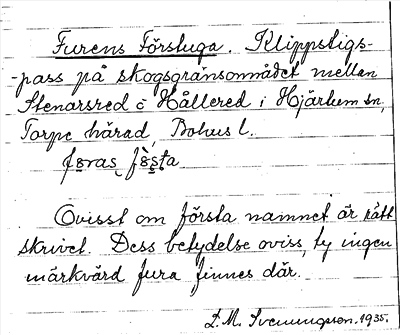 Furens Förstuga. Klippstigs-
-pass på skogsgränsområdet mellan
Stenarsred o Hållered i Hjärtum sn,
Torpe härad, Bohus l.
Ovisst om första namnet är rätt
skrivet. Dess betydelse oviss, ty ingen
märkvärd fura finnes där.
L. M. Svenungsson. 1935.